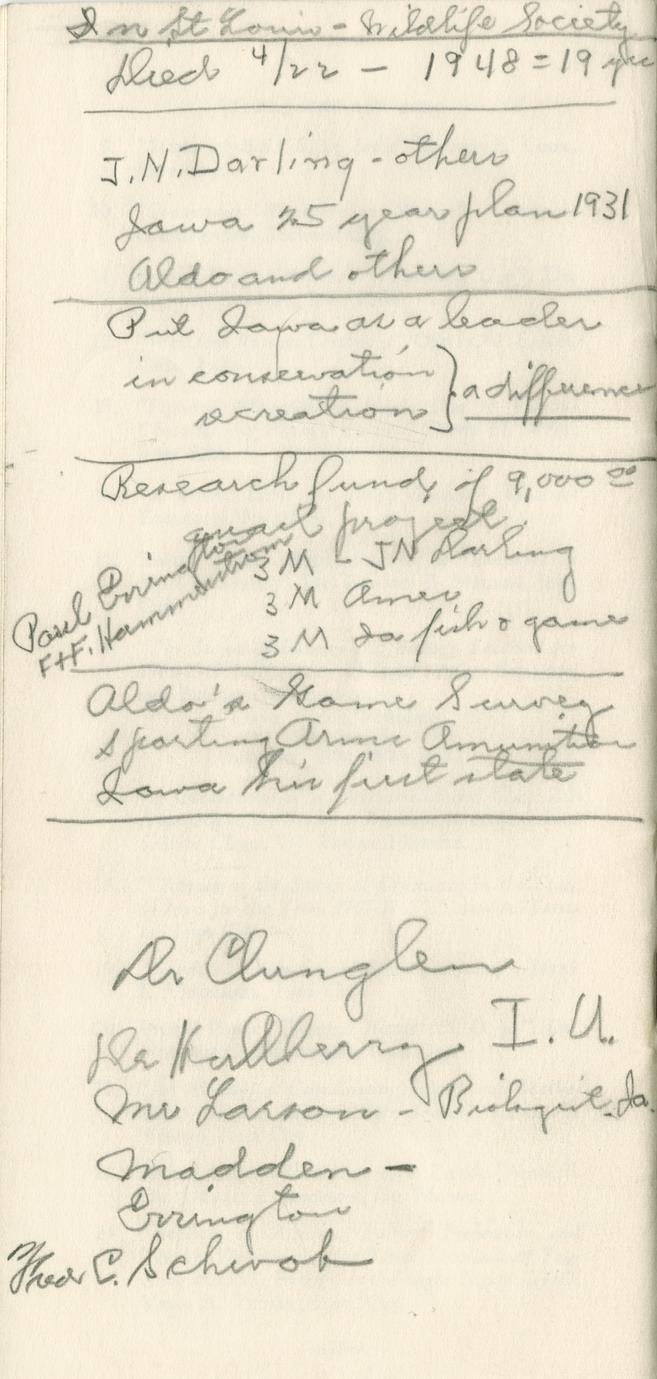 In St Louis - Wildlife Society
Died 4/22 - 1948 = 19 yrs
J.N. Darling - others
Iowa 25 year plan 1931
Aldo and others
Put Iowa as a leader
in conservation } a difference
recreation
Research fund of 9,000 00
quail project
Paul Errington
F+F. Hammerstrom
3 M - JN Darling
3 M Ames
3 M Ia fish & game
Aldo's Game Survey
sporting Arms Amunition
Iowa his first state
Dr
Dr I.U.
Mr Larson - Biologist. Ia.
Madden -
Errington
Fred C. Schwob